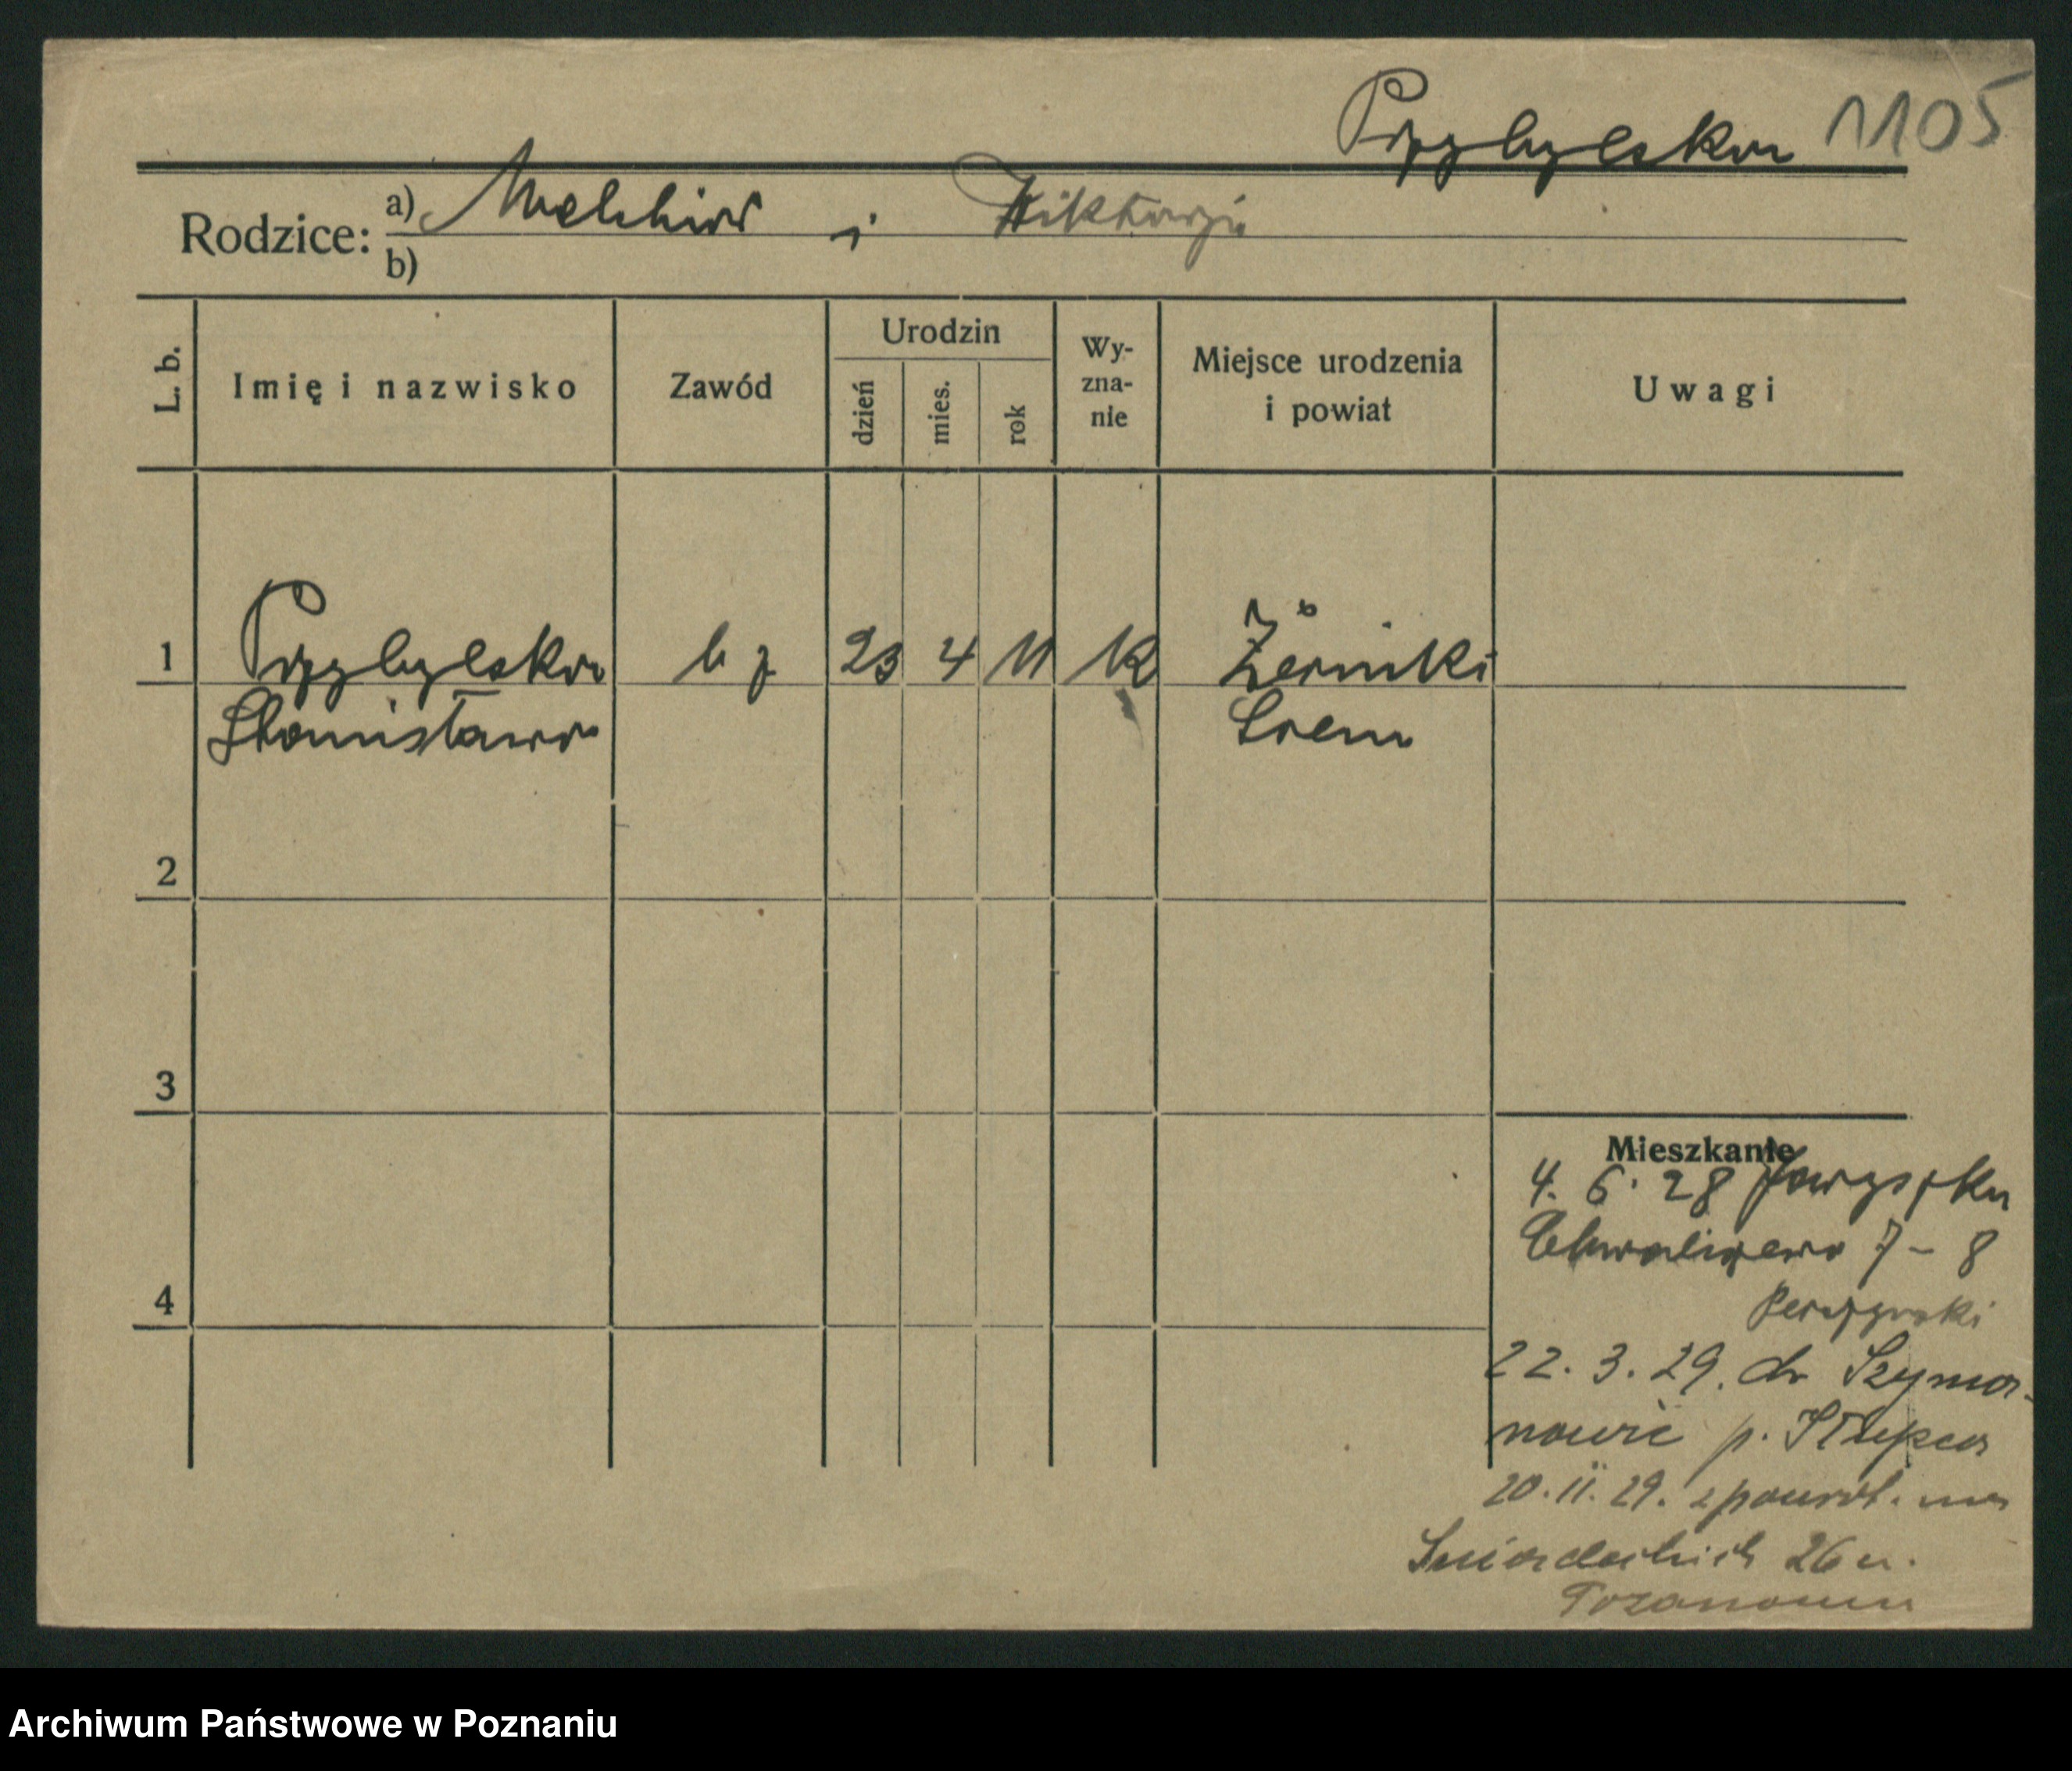 Przybylska 1105
Rodzice: a) Melchior i Wiktorja
b)
L. b. Imię i nazwisko Zawód Urodzin dzień mies. rok Wy-zna-nie Miejsce urodzenia i powiat Uwagi
1 Przybylska b z 23 4 11 K Żerniki
Stanisława Srem
2
3
Mieszkanie
4. 6. 28
Chwaliszewo 7 - 8
4
22. 3. 29. do Szyma-
nowic p. Słupca
20. 11. 29. z powrot. na
Śniadeckich 26 u.
Archiwum Państwowe w Poznaniu